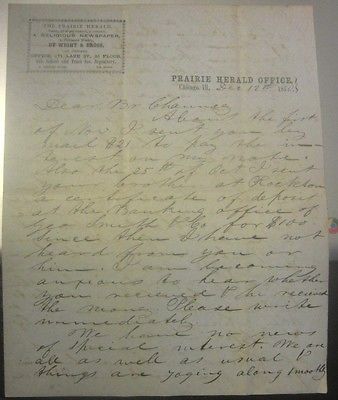 THE PRAIRIE HERALD,
A RELIGIOUS NEWSPAPER,
OFFICE, 171 LAKE ST., 3d FLOOR
PRAIRIE HERALD OFFICE,
Chicago, Ill., Dec 12th 185
Dear Br Chauncey
About the first
of Nov I sent you by
mail $21 to pay the in-
terest on my note.
Also the 25th of Oct I sent
your brother at Rockton
a certificate of deposit
at the Banking office of
Geo Smith & Co for $100
Since then I have not
heard from you or
him. I am becoming
anxious to hear whether
you recieved & he recieved
the money. Please write
immediately
We have no news
of special interest. We are
all as well as usual &
things are joging along smoothly